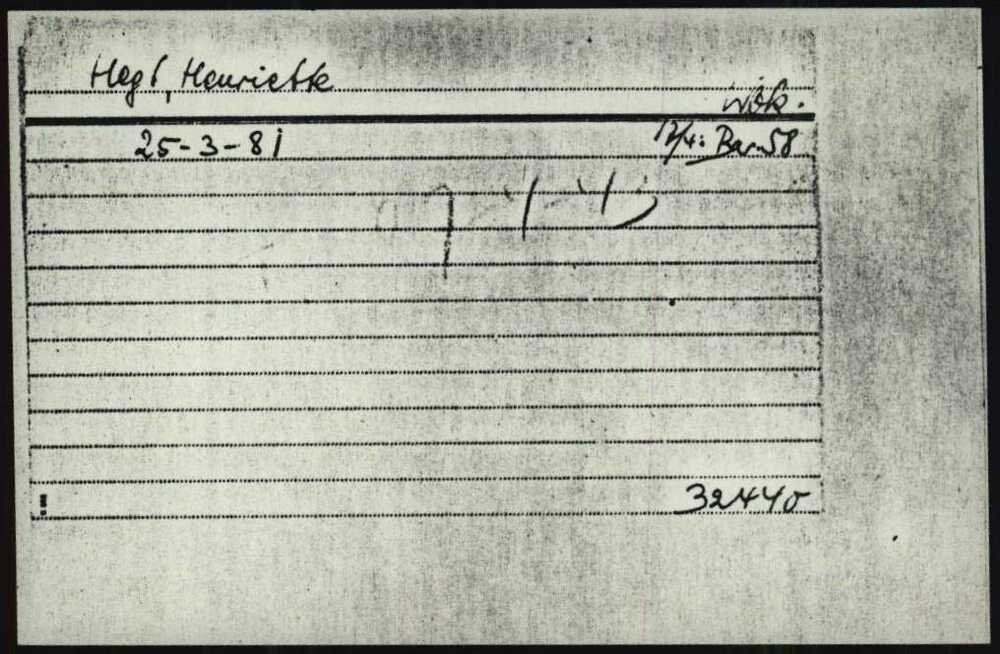 Hegt, Henriette
Wök.
25-3-81
17/4: Bar. 58
32440